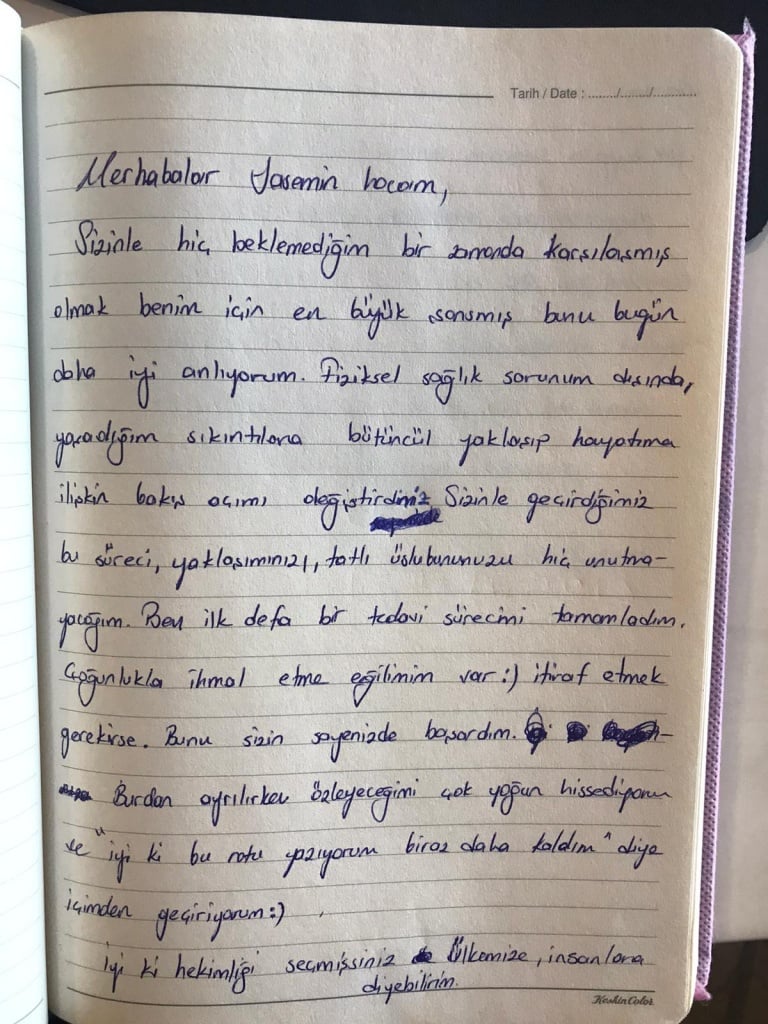 Tarih / Date : ......../......../............
Merhabalar Yasemin hocam,
Sizinle hiç beklemediğim bir zamanda karşılaşmış
olmak benim için en büyük şansmış bunu bugün
daha iyi anlıyorum. Fiziksel sağlık sorunum dışında,
yaşadığım sıkıntılara bütüncül yaklaşıp hayatıma
ilişkin bakış açımı değiştirdiniz Sizinle geçirdiğimiz
bu süreci, yaklaşımınızı, tatlı üslubununuzu hiç unutma-
yacağım. Ben ilk defa bir tedavi sürecini tamamladım.
Çoğunlukla ihmal etme eğilimim var :) itiraf etmek
gerekirse. Bunu sizin sayenizde başardım.
Burdan ayrılırken özleyeceğimi çok yoğun hissediyorum
ve "iyi ki bu notu yazıyorum biraz daha kaldım" diye
içimden geçiriyorum :)
İyi ki hekimliği seçmişsiniz Ülkemize, insanlara
diyebilirim.
KeskinColor